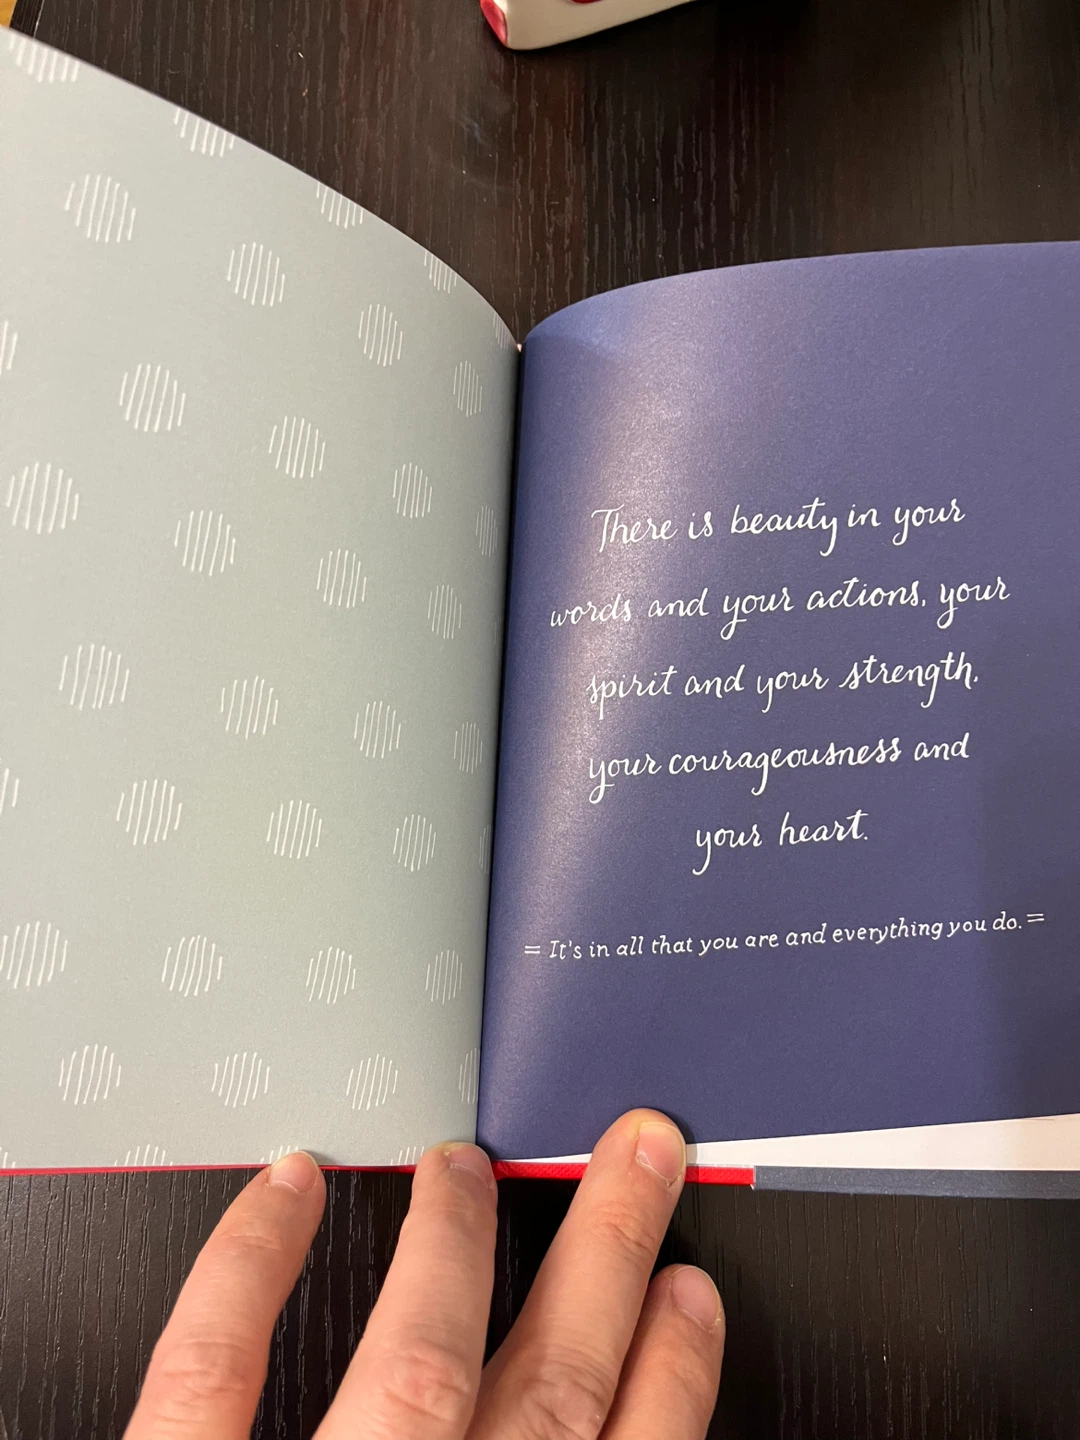 There is beauty in your
words and your actions, your
spirit and your strength,
your courageousness and
your heart.
= It's in all that you are and everything you do. =